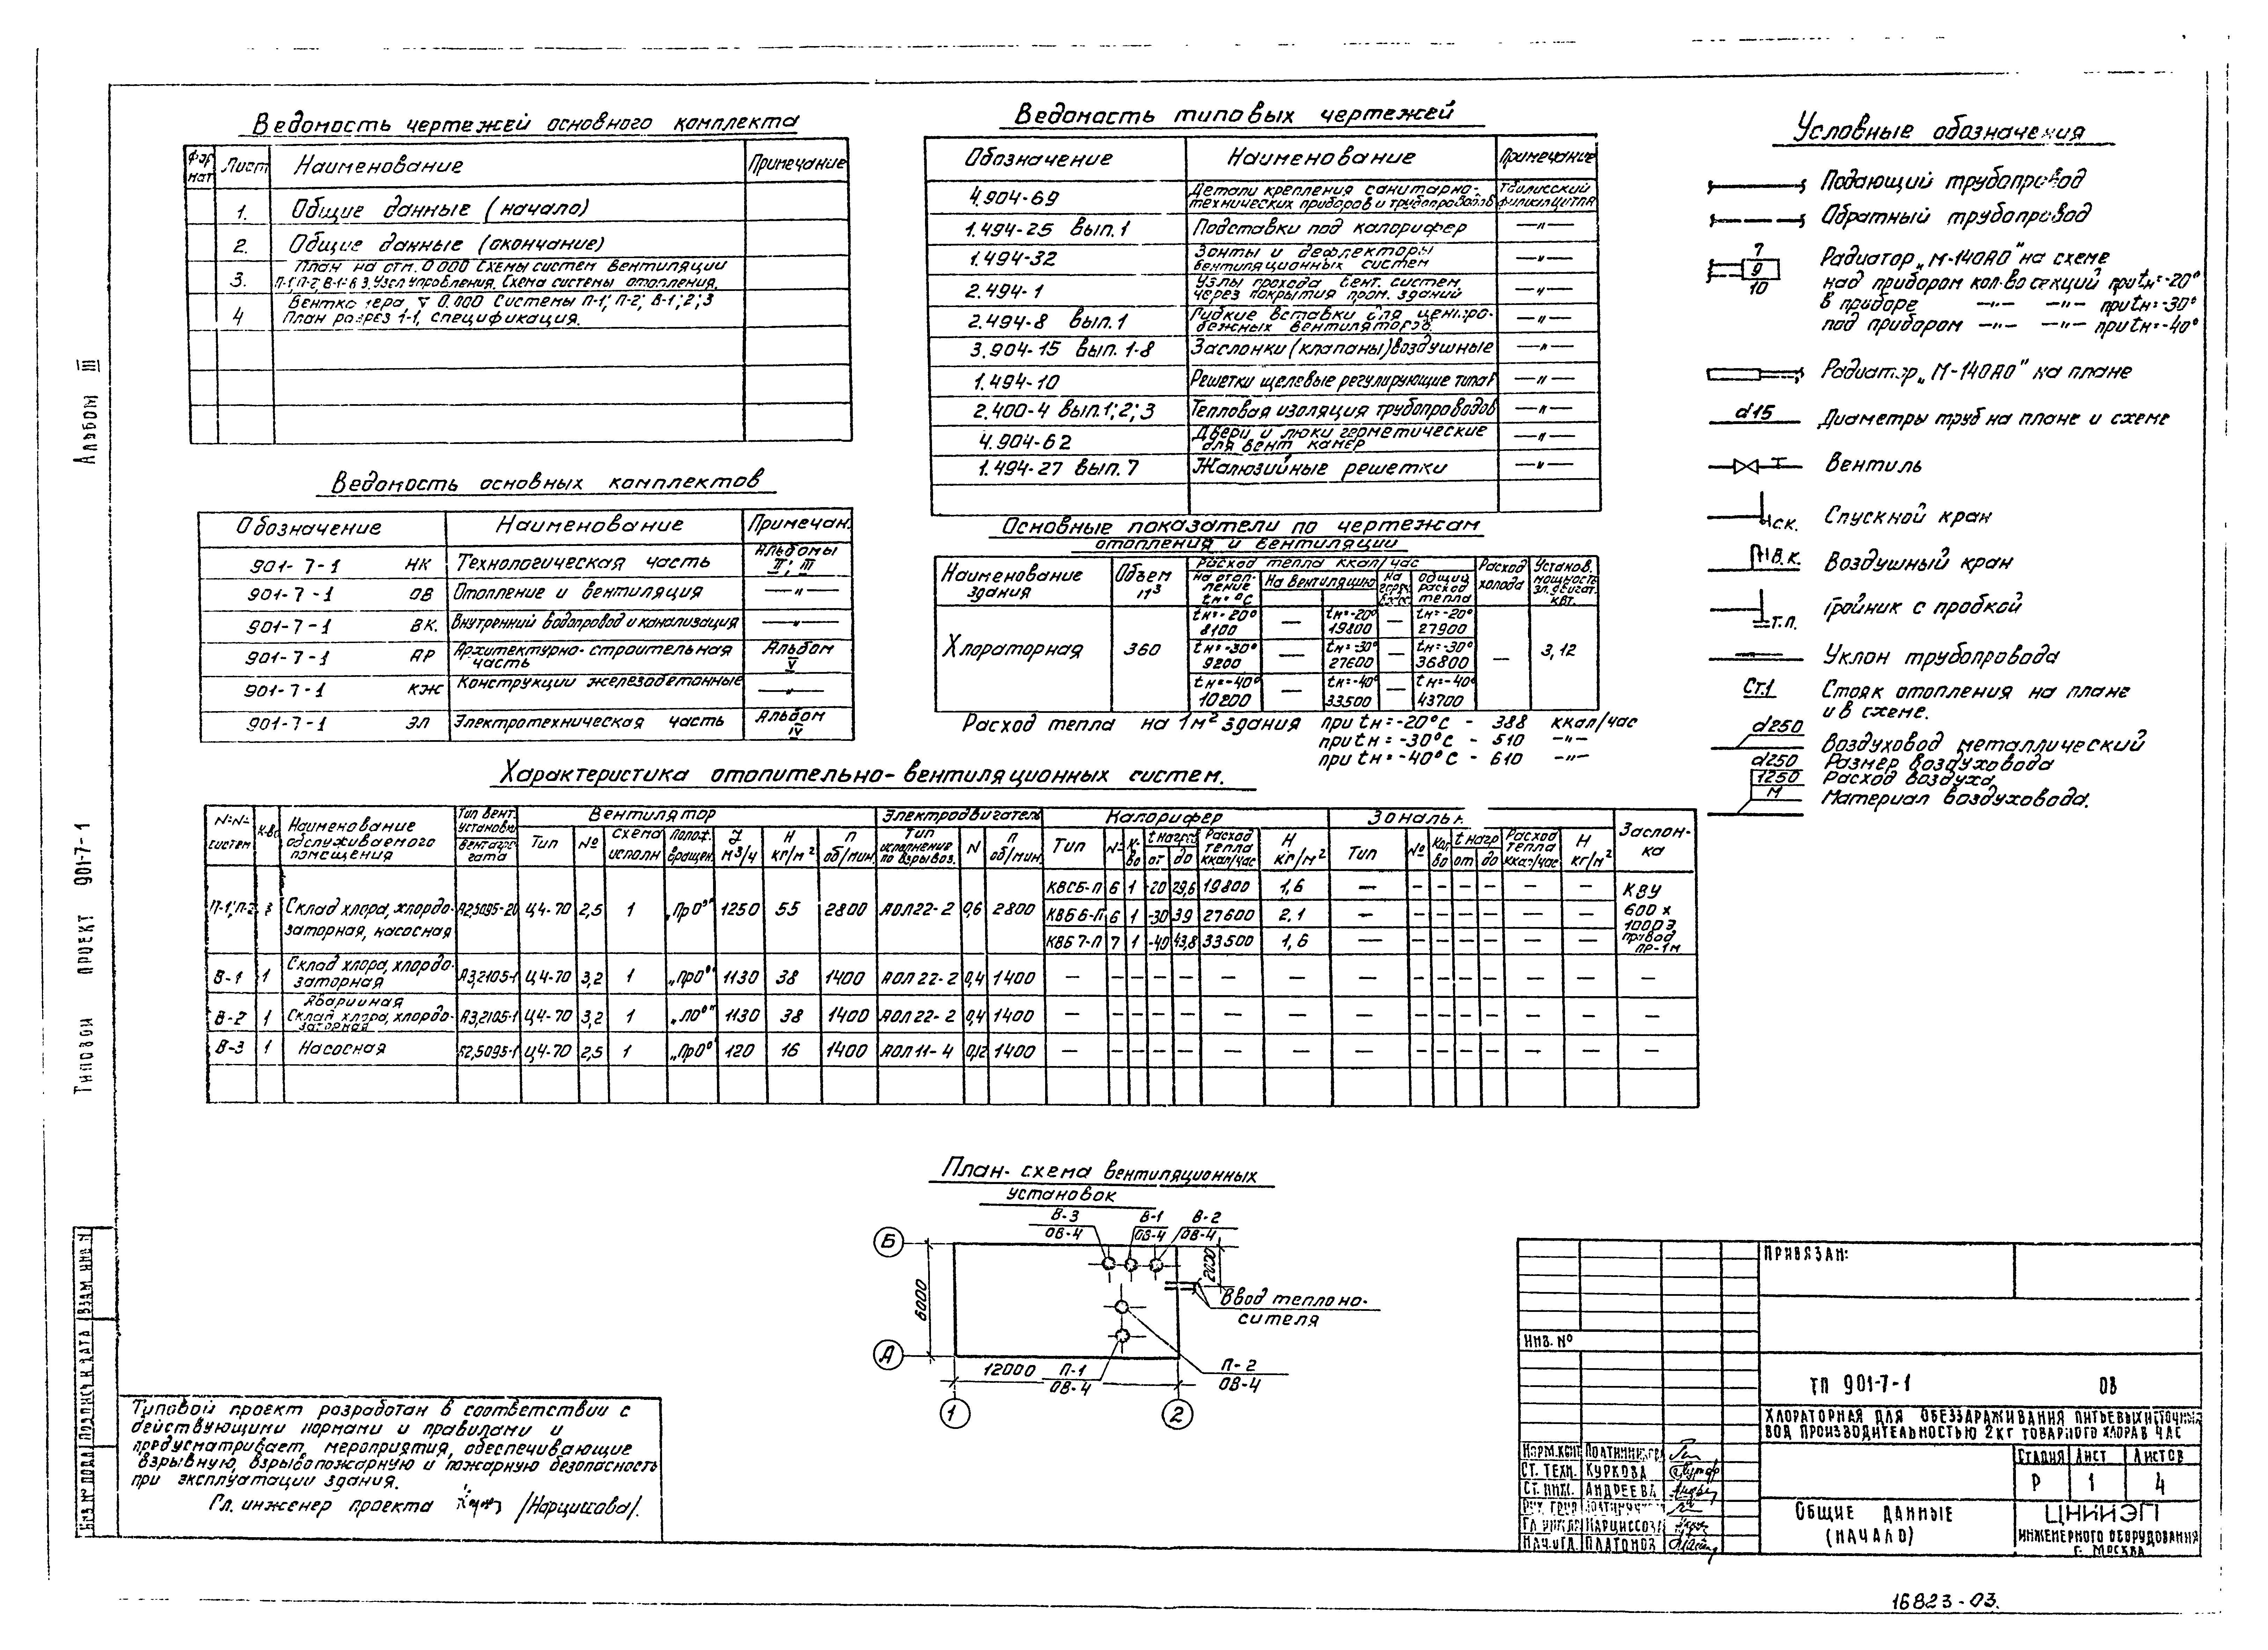 Ведомость чертежей основного комплекта
Формат Лист Наименование Примечание
1. Общие данные (начало)
2. Общие данные (окончание)
3. План на отм. 0.000 Схемы систем вентиляции
П-1; П-2; В-1÷В 3. Узел управления. Схема системы отопления.
4 0.000 Системы П-1; П-2; В-1; 2; 3
План разрез 1-1, спецификация.
Ведомость основных комплектов
Обозначение Наименование Примечан.
901-7-1 НК Технологическая часть Альбомы II; III
901-7-1 ОВ Отопление и вентиляция —"—
901-7-1 ВК. Внутренний водопровод и канализация —"—
901-7-1 АР Архитектурно-строительная часть Альбом V
901-7-1 КЖ Конструкции железобетонные —"—
901-7-1 ЭЛ Электротехническая часть Альбом IV
Ведомость типовых чертежей
Обозначение Наименование Примечание
4.904-69 Детали крепления санитарно-технических приборов и трубопроводов Тбилисский филиал ЦИТП
1.494-25 вып.1 Подставки под калорифер —"—
1.494-32 Зонты и дефлекторы вентиляционных систем —"—
2.494-1 Узлы прохода вент. систем через покрытия пром. зданий —"—
2.494-8 вып.1 Гибкие вставки для центробежных вентиляторов. —"—
3.904-15 вып. 1-8 Заслонки (клапаны) воздушные —"—
1.494-10 Решетки щелевые регулирующие типа Р —"—
2.400-4 вып.1; 2; 3 Тепловая изоляция трубопроводов —"—
4.904-62 Двери и люки герметические для вент камер —"—
1.494-27 вып. 7 Жалюзийные решетки —"—
Основные показатели по чертежам
отопления и вентиляции
Наименование здания Объем м³ Расход тепла ккал/час Расход холода Установ. мощность эл. двигат. квт.
на отопление tн=°C На вентиляцию на общий расход тепла
Хлораторная 360 — 3,12
tн=-20° 8100 — tн=-20° 19800 — tн=-20° 27900
tн=-30° 9200 — tн=-30° 27600 — tн=-30° 36800
tн=-40° 10200 — tн=-40° 33500 — tн=-40° 43700
Расход тепла на 1м² здания при tн=-20°C - 388 ккал/час
при tн=-30°C - 510 —"—
при tн=-40°C - 610 —"—
Условные обозначения
Подающий трубопровод
Обратный трубопровод
7
9
10
Радиатор „М-140АО" на схеме
над прибором кол.во секций при tн=-20°
в приборе —"— —"— при tн=-30°
под прибором —"— —"— при tн=-40°
Радиатор „М-140АО" на плане
d15 Диаметры труб на плане и схеме
Вентиль
СК. Спускной кран
В.К. Воздушный кран
Т.П. Тройник с пробкой
Уклон трубопровода
Ст.1 Стояк отопления на плане
и в схеме.
d250 Воздуховод металлический
d250 Размер воздуховода
1250 Расход воздуха
М Материал воздуховода.
Характеристика отопительно-вентиляционных систем.
№№ систем К-во Наименование обслуживаемого помещения Тип вент. установки вентагрегата Вентилятор Электродвигатель Калорифер Заслонка
Тип № Схема исполн Полож. вращен. м³/ч Н кг/м² п об/мин. Тип исполнение по взрывоз. N п об/мин. Тип № К-во t нагр от до Расход тепла ккал/час Н кг/м² Тип № Кол во t нагр от до Расход тепла ккал/час Н кг/м²
П-1; П-2 Склад хлора, хлордозаторная, насосная А2,5095-2а Ц4-70 2,5 1 „Пр0°" 1250 55 2800 АОЛ22-2 0,6 2800
6 1 -20 29,6 19800 1,6 — — — — — — —
КВБ 6-П 6 1 -30 39 27600 2,1 — — — — — — —
КВБ 7-П 7 1 -40 43,8 33500 1,6 — — — — — — —
КВУ 600 х 1000 Э привод пр-1м
В-1 1 Склад хлора, хлордозаторная А3,2105-1 Ц4-70 3,2 1 „Пр0°" 1130 38 1400 АОЛ 22-2 0,4 1400 — — — — — — — — — — — — — — —
В-2 1 Аварийная Склад хлора, хлордозаторная А3,2105-1 Ц4-70 3,2 1 „Л0°" 1130 38 1400 АОЛ 22-2 0,4 1400 — — — — — — — — — — — — — — —
В-3 1 Насосная Ц4-70 2,5 1 „Пр0°" 120 16 1400 АОЛ 11-4 0,12 1400 — — — — — — — — — — — — — — —
План-схема вентиляционных
установок
В-3 В-1 В-2
ОВ-4 ОВ-4 ОВ-4
Б
6000
2000
Ввод теплоносителя
А
12000 П-1
ОВ-4
П-2
ОВ-4
1 2
Типовой проект разработан в соответствии с
действующими нормами и правилами и
предусматривает мероприятия, обеспечивающие
взрывную, взрывопожарную и пожарную безопасность
при эксплуатации здания.
Гл. инженер проекта /Нарциссова/.
Альбом III
Типовой проект 901-7-1
Взам. инв N
Подпись и дата
Инв № подл
Привязан:
Инв. №
ТП 901-7-1 ОВ
Хлораторная для обеззараживания питьевых и сточных
вод производительностью 2кг товарного хлора в час
Норм.конт
Ст. техн. Куркова
Ст. инж. Андреева
Рук. груп
Нарциссова
Нач. отд. Платонов
Стадия Лист Листов
Р 1 4
Общие данные
(начало)
ЦНИИЭП
инженерного оборудования
г. Москва
16823-03.